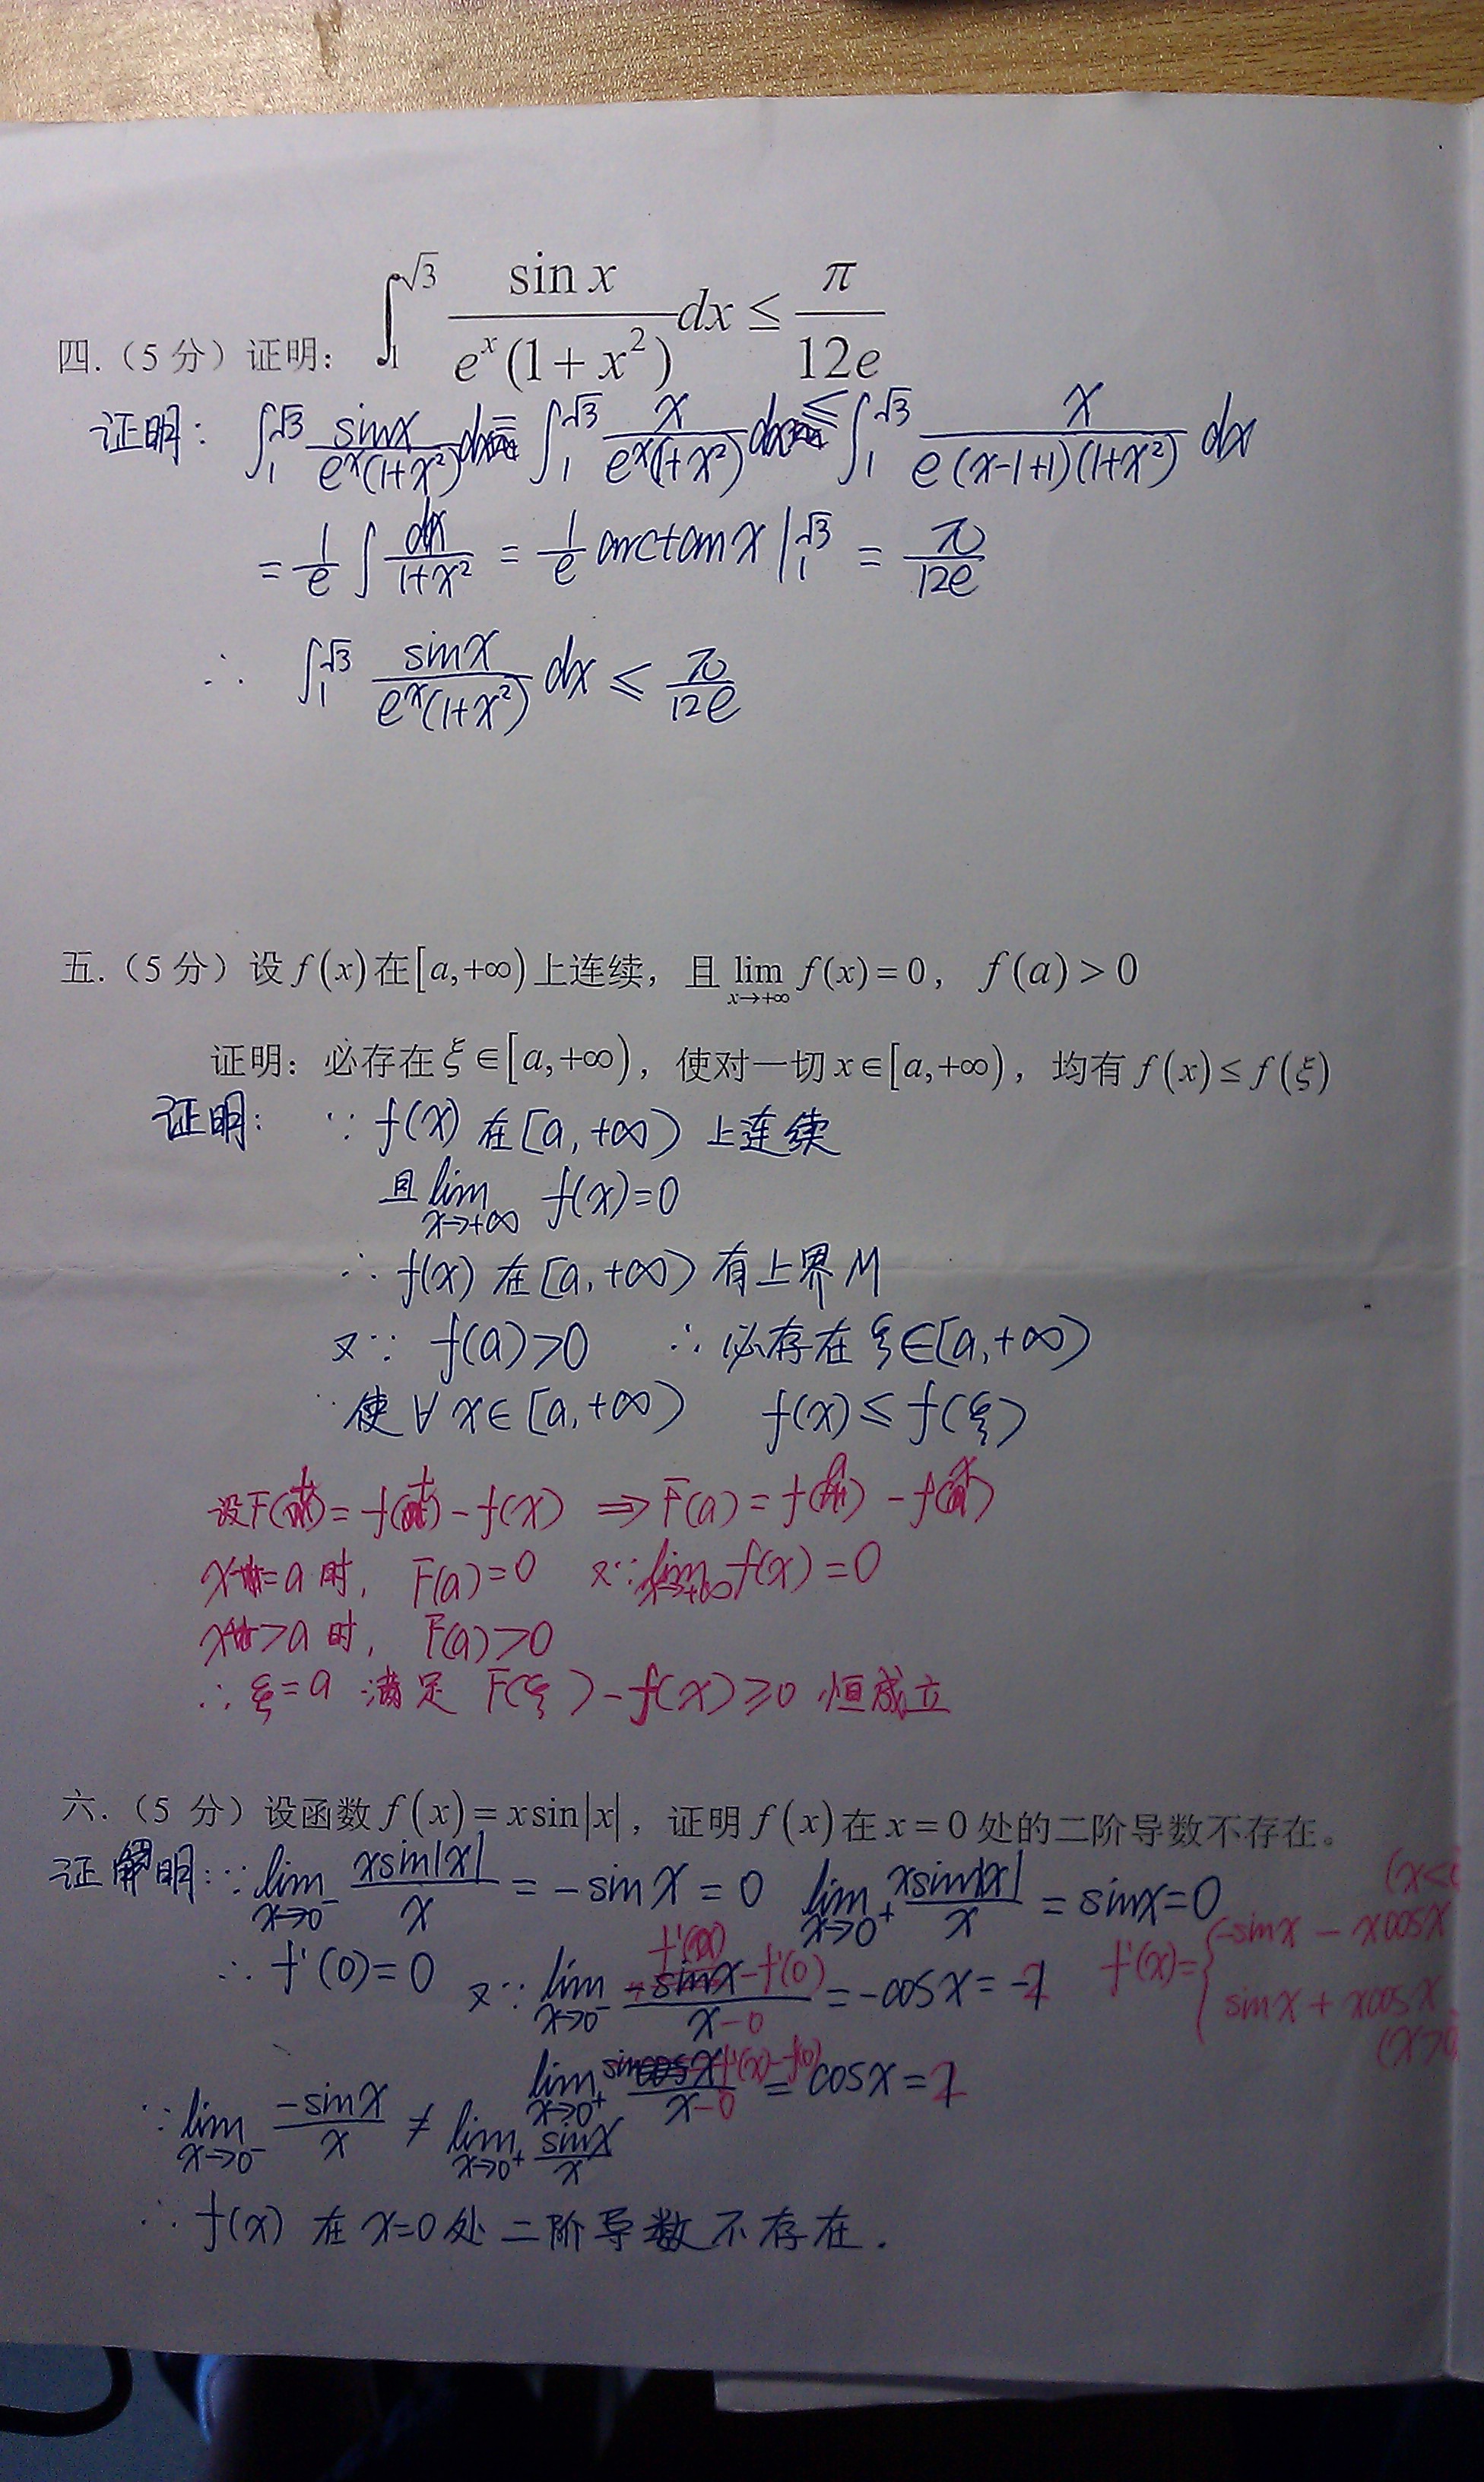 四.（5分）证明： ∫₁^√3 sin x / (eˣ(1+x²)) dx ≤ π/(12e)
证明： ∫₁^√3 sinx/(eˣ(1+x²)) dx ≤ ∫₁^√3 x/(eˣ(1+x²)) dx ≤ ∫₁^√3 x/(e(x-1+1)(1+x²)) dx
= 1/e ∫ dx/(1+x²) = 1/e arctan x |₁^√3 = π/(12e)
∴ ∫₁^√3 sinx/(eˣ(1+x²)) dx ≤ π/(12e)
五.（5分）设 f(x) 在 [a,+∞) 上连续，且 lim_{x→+∞} f(x)=0， f(a)>0
证明：必存在 ξ∈[a,+∞)，使对一切 x∈[a,+∞)，均有 f(x)≤f(ξ)
证明： ∵ f(x) 在 [a,+∞) 上连续
且 lim_{x→+∞} f(x)=0
∴ f(x) 在 [a,+∞) 有上界 M
又∵ f(a)>0 ∴ 必存在 ξ∈[a,+∞)
使 ∀ x∈[a,+∞) f(x)≤f(ξ)
设F(t)= f(t)-f(x) ⇒ F(a)=f(a)-f(x)
x=a 时, F(a)=0 又∵ lim_{x→+∞} f(x)=0
x>a 时, F(a)>0
∴ ξ=a 满足 F(ξ)-f(x)≥0 恒成立
六.（5 分）设函数 f(x)=x sin|x|，证明 f(x) 在 x=0 处的二阶导数不存在。
证明：∵ lim_{x→0⁻} xsin|x|/x = -sinx = 0 lim_{x→0⁺} xsin|x|/x = sinx=0
∴ f'(0)=0 又∵ lim_{x→0⁻} (f'(x)-f'(0))/(x-0) = -cosx = -2 f'(x)={ -sinx - xcosx
sinx + xcosx
lim_{x→0⁺} (f'(x)-f'(0))/(x-0) = cosx = 2
∵ lim_{x→0⁻} -sinx/x ≠ lim_{x→0⁺} sinx/x
∴ f(x) 在 x=0处 二阶导数不存在.